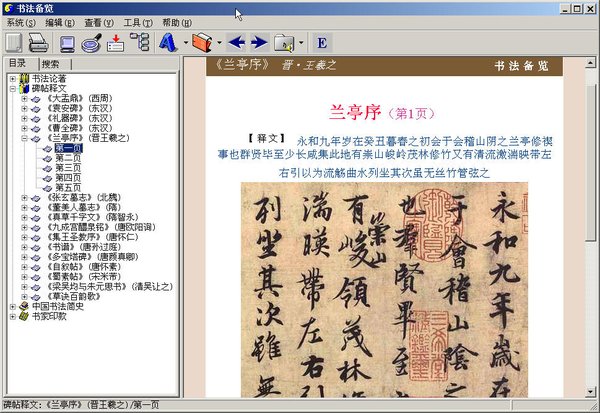 书法备览
系统(S) 编辑(E) 查看(V) 工具(T) 帮助(H)
A ? E
目录 搜索
书法论著
碑帖释文
《大盂鼎》(西周)
《袁安碑》(东汉)
《礼器碑》(东汉)
《曹全碑》(东汉)
《兰亭序》(晋王羲之)
第一页
第二页
第三页
第四页
第五页
《张玄墓志》(北魏)
《董美人墓志》(隋)
《真草千字文》(隋智永)
《九成宫醴泉铭》(唐欧阳询)
《集王圣教序》(唐怀仁)
《书谱》(唐孙过庭)
《多宝塔碑》(唐颜真卿)
《自叙帖》(唐怀素)
《蜀素帖》(宋米芾)
《梁吴均与朱元思书》(清吴让之)
《草诀百韵歌》
中国书法简史
书家印款
《兰亭序》 晋·王羲之 书法备览
兰亭序(第1页)
【释文】 永和九年岁在癸丑暮春之初会于会稽山阴之兰亭修禊
事也群贤毕至少长咸集此地有崇山峻岭茂林修竹又有清流激湍映带左
右引以为流觞曲水列坐其次虽无丝竹管弦之
永和九年歲在
于會稽山陰之
也群賢畢至
有崇山峻領茂林
湍暎帶左右引
列坐其次雖無
碑帖释文:《兰亭序》(晋王羲之)/第一页